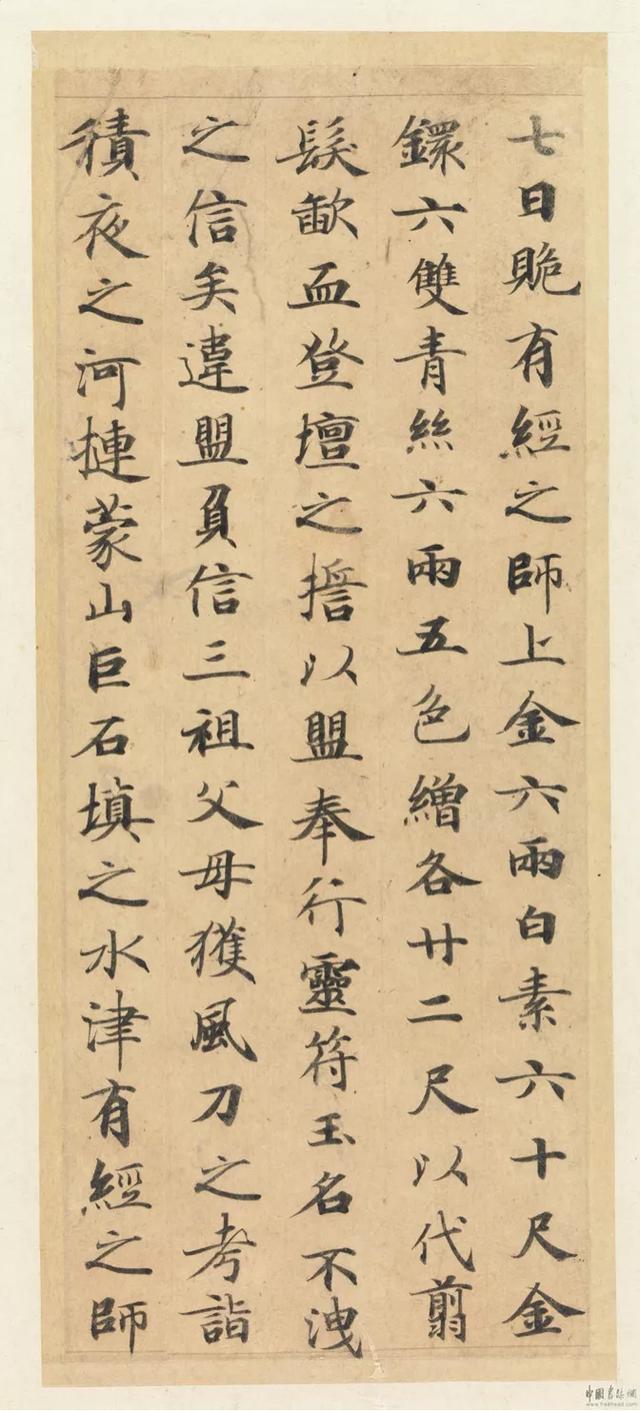 七日跪有經之師上金六兩白素六十尺金
鐶六雙青絲六兩五色繒各廿二尺以代翦
髮歃血登壇之誓以盟奉行靈符玉名不洩
之信矣違盟負信三祖父母獲風刀之考詣
積夜之河摙蒙山巨石填之水津有經之師
中国书法网
www.freehead.com